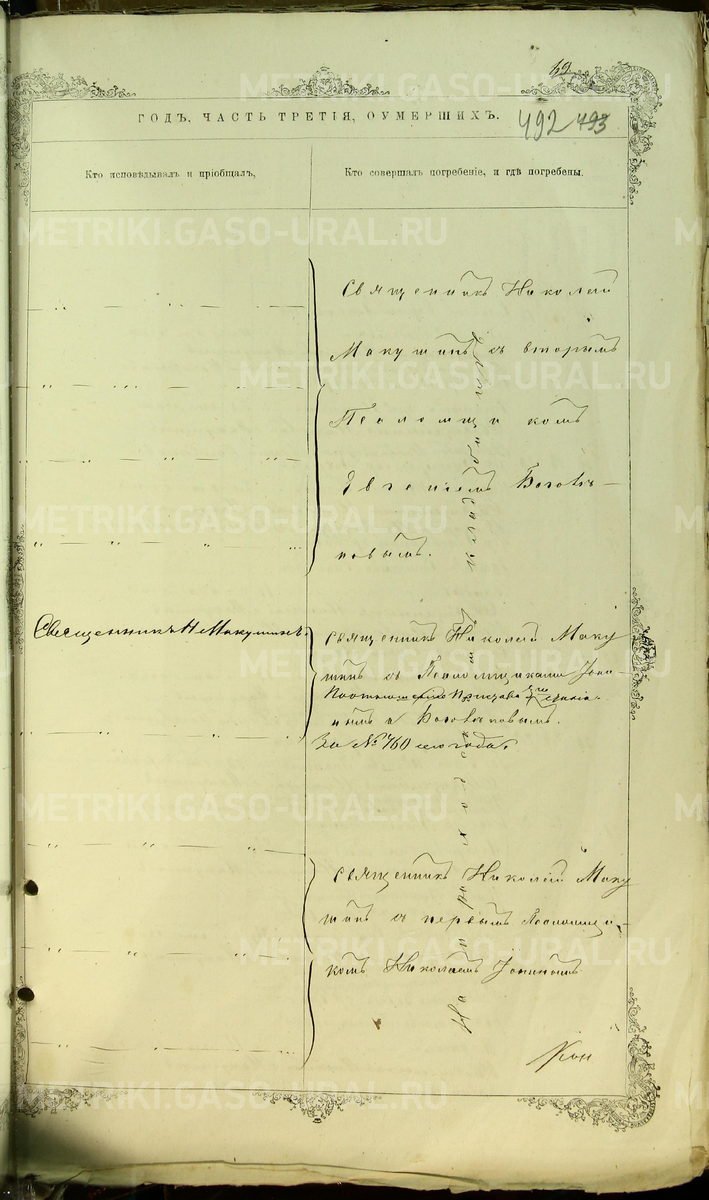 39
ГОДЪ. ЧАСТЬ ТРЕТІЯ, ОУМЕРШИХЪ.
492 493
Кто исповѣдывалъ и пріобщалъ,
Кто совершалъ погребеніе, и гдѣ погребены.
Священникъ Николай
Макушинъ съ вторымъ
Псаломщикомъ
Евгеніемъ
повымъ.
Священникъ Н Макушинъ.
Священникъ Николай Маку
шинъ съ Псаломщиками Іони-
По отношенію Пристава
нымъ и
За № 760 сего года.
Священникъ Николай Маку
шинъ съ первымъ Псаломщи-
комъ Николаемъ Іонинымъ
На приходскомъ кладбищѣ
METRIKI.GASO-URAL.RU